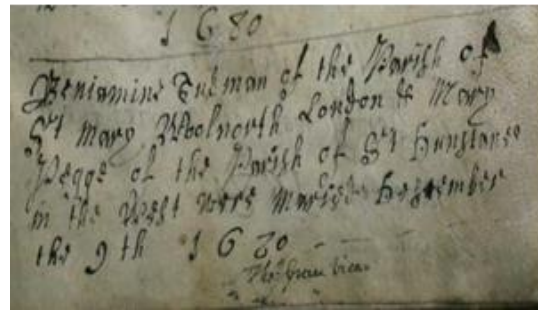 1680
Beniamine of the Parish of
St Mary Woolnorth London & Mary
Pegge of the Parish of St Dunstanes
in the West were Maried
the 9th 1680